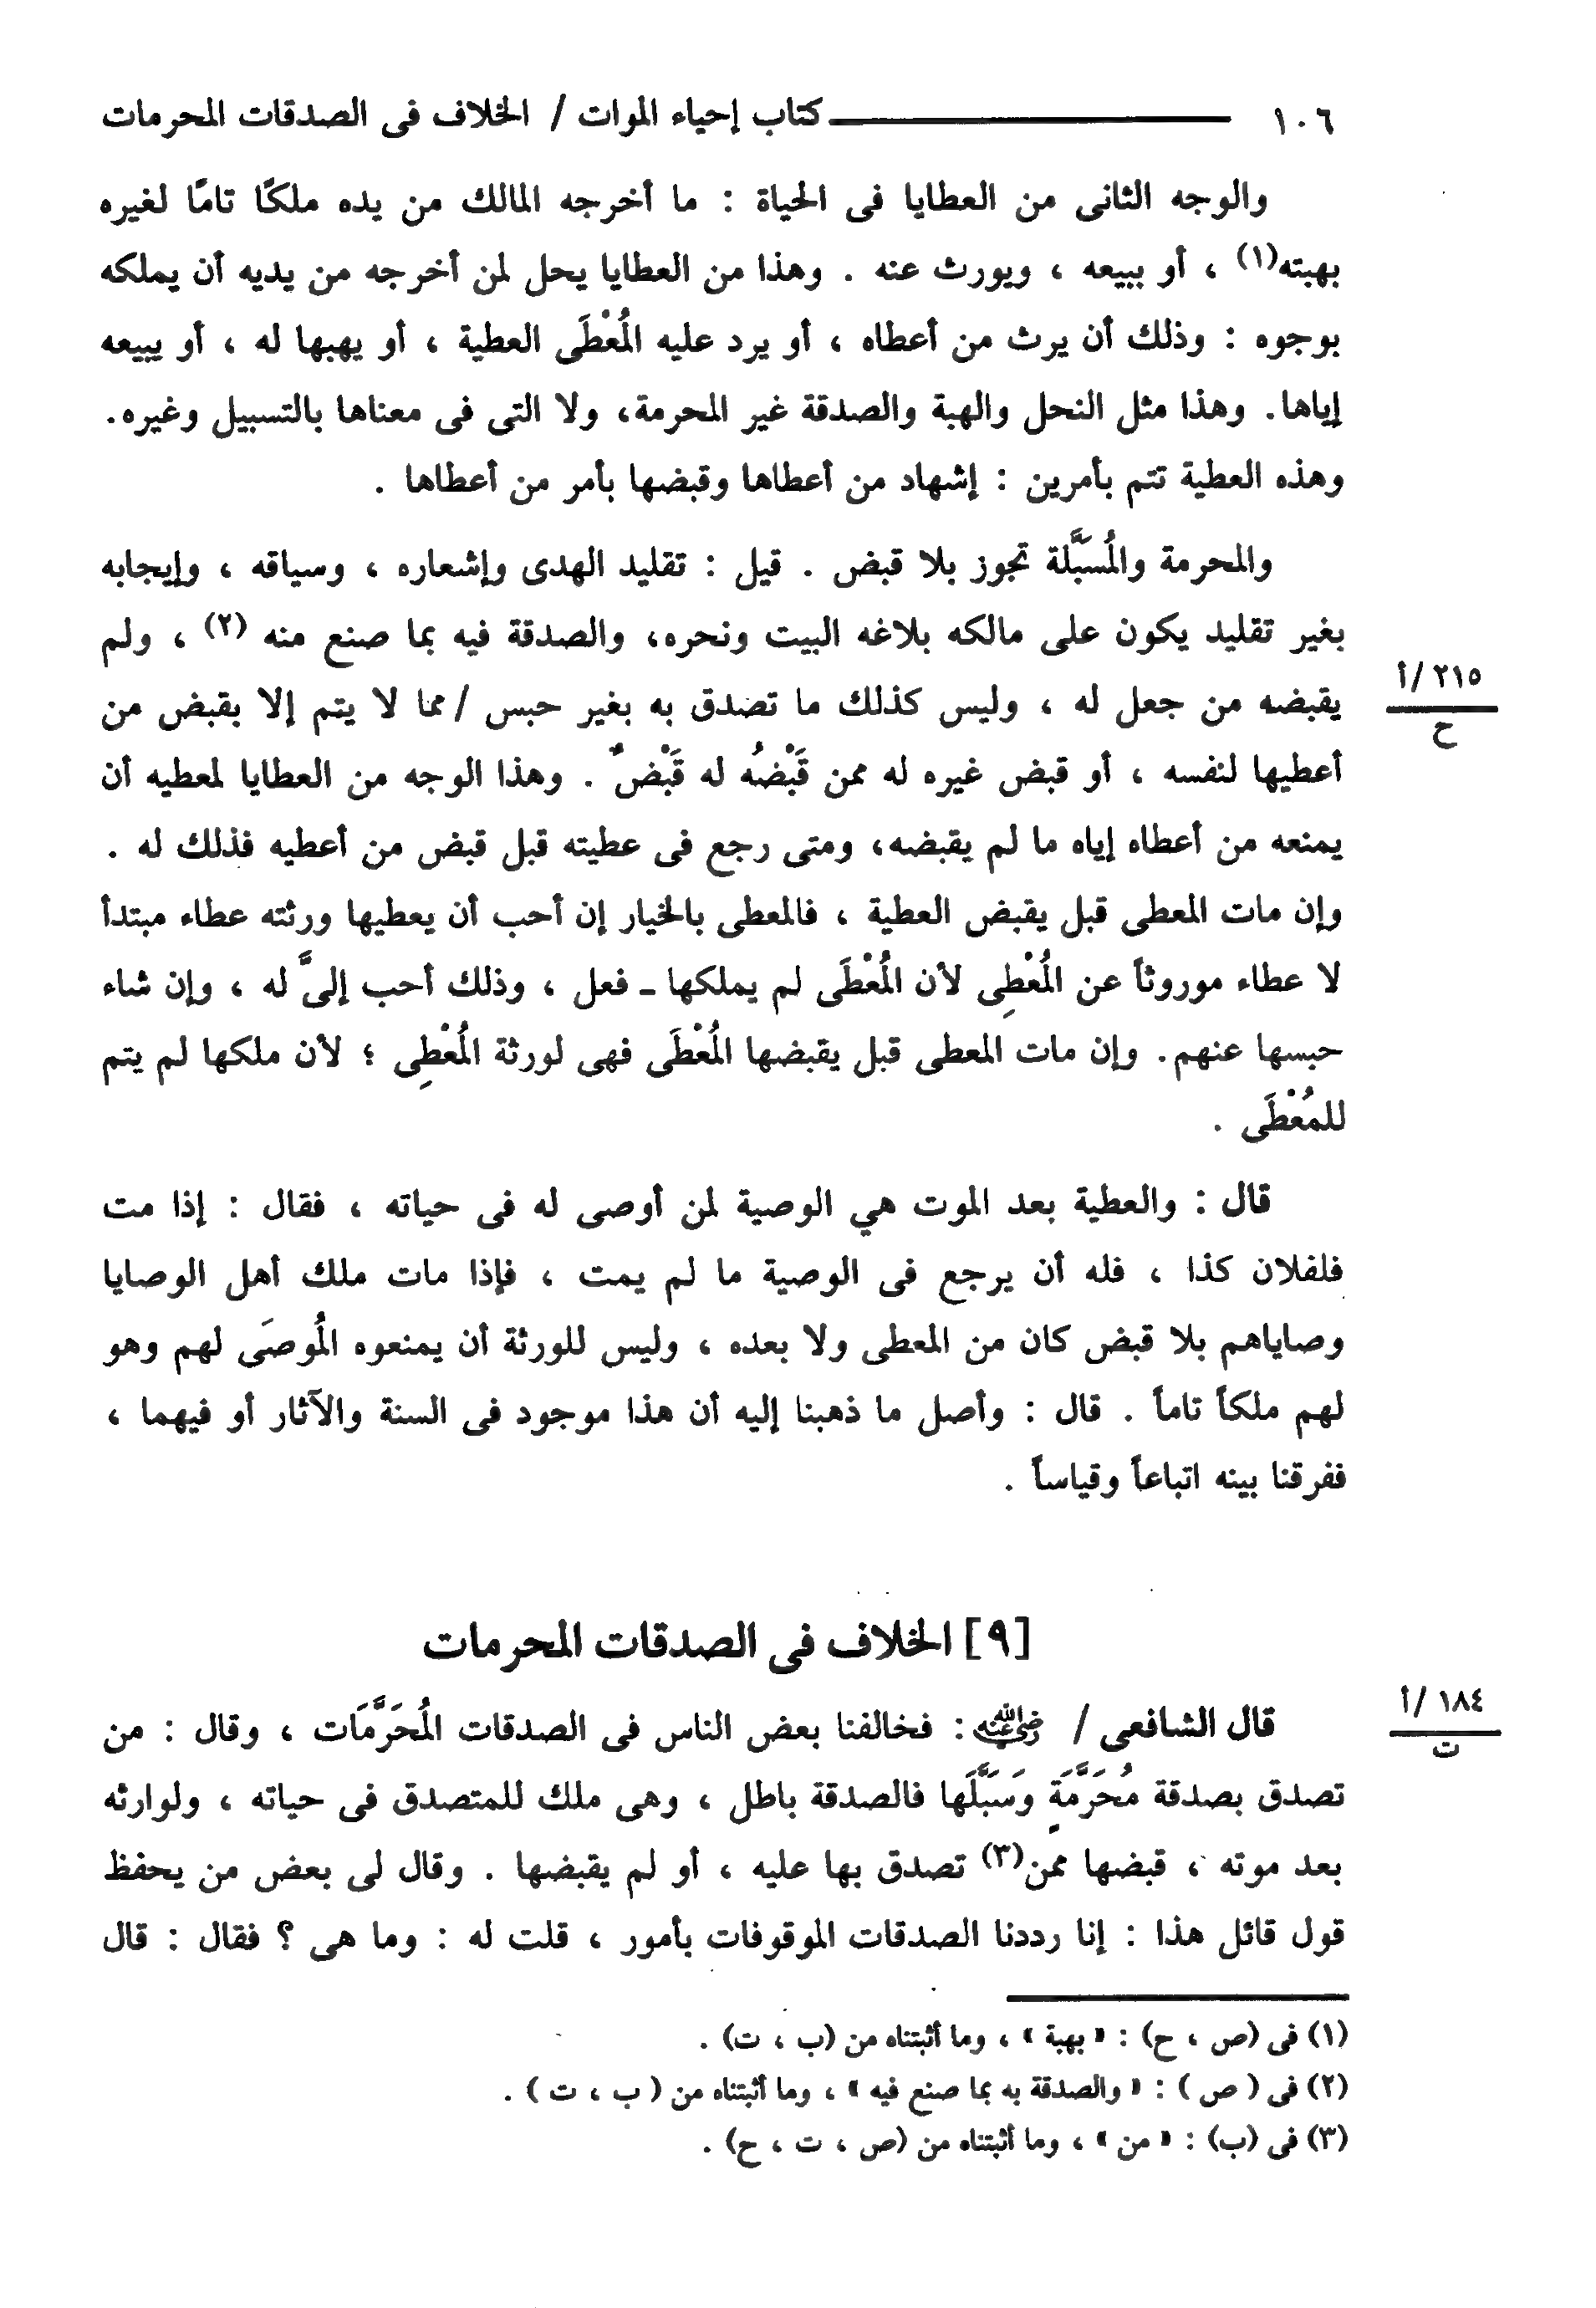 ١٠٦ كتاب إحياء الموات / الخلاف فى الصدقات المحرمات
والوجه الثانى من العطايا فى الحياة : ما أخرجه المالك من يده ملكًا تامًا لغيره
بهبته(١) ، أو ببيعه ، ويورث عنه . وهذا من العطايا يحل لمن أخرجه من يديه أن يملكه
بوجوه : وذلك أن يرث من أعطاه ، أو يرد عليه المُعْطَى العطية ، أو يهبها له ، أو يبيعه
إياها. وهذا مثل النحل والهبة والصدقة غير المحرمة، ولا التى فى معناها بالتسبيل وغيره.
وهذه العطية تتم بأمرين : إشهاد من أعطاها وقبضها بأمر من أعطاها .
والمحرمة والمُسَبَّلة تجوز بلا قبض . قيل : تقليد الهدى وإشعاره ، وسياقه ، وإيجابه
بغير تقليد يكون على مالكه بلاغه البيت ونحره، والصدقة فيه بما صنع منه (٢) ، ولم
٢١٥/أ
ح
يقبضه من جعل له ، وليس كذلك ما تصدق به بغير حبس / مما لا يتم إلا بقبض من
أعطيها لنفسه ، أو قبض غيره له ممن قَبْضُه له قَبْضٌ . وهذا الوجه من العطايا لمعطيه أن
يمنعه من أعطاه إياه ما لم يقبضه، ومتى رجع فى عطيته قبل قبض من أعطيه فذلك له .
وإن مات المعطى قبل يقبض العطية ، فالمعطى بالخيار إن أحب أن يعطيها ورثته عطاء مبتدأ
لا عطاء موروثاً عن المُعْطِى لأن المُعْطَى لم يملكها ـ فعل ، وذلك أحب إلىَّ له ، وإن شاء
حبسها عنهم. وإن مات المعطى قبل يقبضها المُعْطَى فهى لورثة المُعْطِى ؛ لأن ملكها لم يتم
للمُعْطَى .
قال : والعطية بعد الموت هي الوصية لمن أوصى له فى حياته ، فقال : إذا مت
فلفلان كذا ، فله أن يرجع فى الوصية ما لم يمت ، فإذا مات ملك أهل الوصايا
وصاياهم بلا قبض كان من المعطى ولا بعده ، وليس للورثة أن يمنعوه المُوصَى لهم وهو
لهم ملكاً تاماً . قال : وأصل ما ذهبنا إليه أن هذا موجود فى السنة والآثار أو فيهما ،
ففرقنا بينه اتباعاً وقياساً .
[٩] الخلاف فى الصدقات المحرمات
١٨٤/أ
ت
قال الشافعى / رضي الله عنه : فخالفنا بعض الناس فى الصدقات المُحَرَّمَات ، وقال : من
تصدق بصدقة مُحَرَّمَةٍ وَسَبَّلَها فالصدقة باطل ، وهى ملك للمتصدق فى حياته ، ولوارثه
بعد موته ، قبضها ممن(٣) تصدق بها عليه ، أو لم يقبضها . وقال لى بعض من يحفظ
قول قائل هذا : إنا رددنا الصدقات الموقوفات بأمور ، قلت له : وما هى ؟ فقال : قال
(١) فى (ص ، ح) : « بهبة » ، وما أثبتناه من (ب ، ت) .
(٢) فى ( ص ) : « والصدقة به بما صنع فيه » ، وما أثبتناه من ( ب ، ت ) .
(٣) فى (ب) : « من » ، وما أثبتناه من (ص ، ت ، ح) .